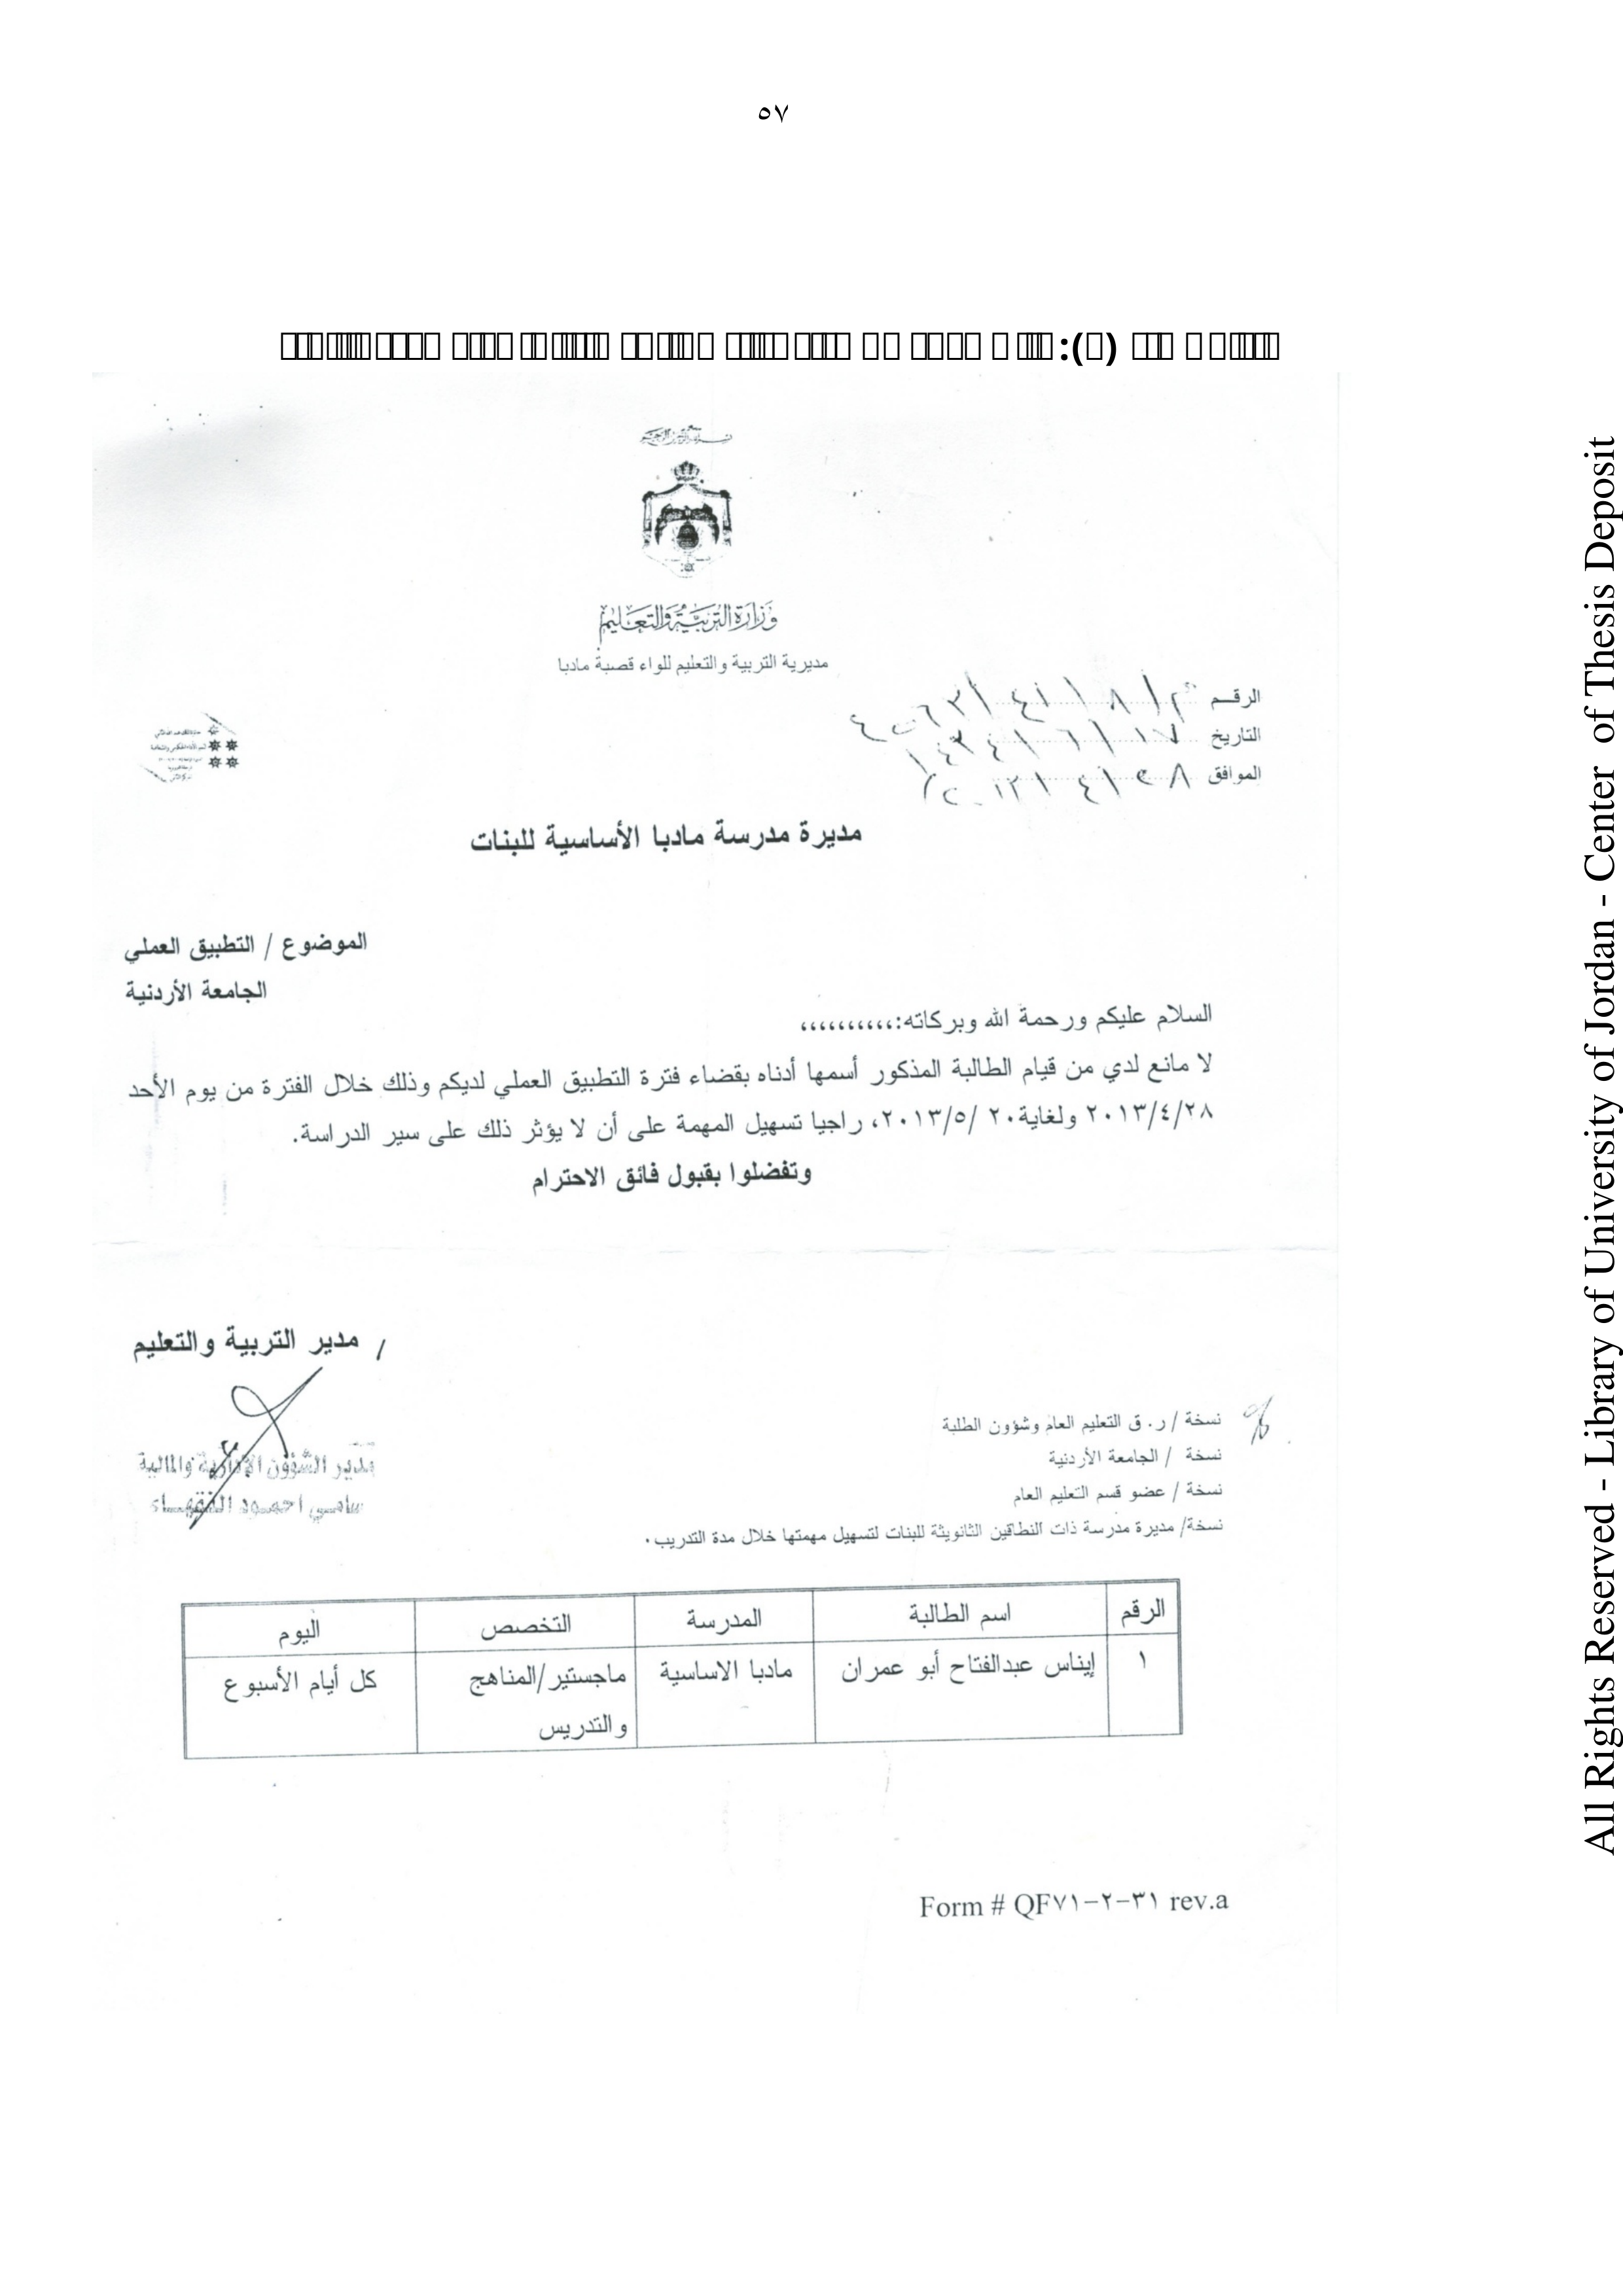 ٥٧
وزارة التربية والتعليم
مديرية التربية والتعليم للواء قصبة مادبا
الرقم
التاريخ ١٧ / ٦ / ١٤٣٤
الموافق ٢٨ / ٤ / ٢٠١٣
مديرة مدرسة مادبا الأساسية للبنات
الموضوع / التطبيق العملي
الجامعة الأردنية
السلام عليكم ورحمة الله وبركاته:،،،،،،،،،،
لا مانع لدي من قيام الطالبة المذكور أسمها أدناه بقضاء فترة التطبيق العملي لديكم وذلك خلال الفترة من يوم الأحد
٢٠١٣/٤/٢٨ ولغاية٢٠ /٢٠١٣/٥، راجيا تسهيل المهمة على أن لا يؤثر ذلك على سير الدراسة.
وتفضلوا بقبول فائق الاحترام
/ مدير التربية والتعليم
مدير الشؤون الإدارية والمالية
سامي احمود الفقهاء
نسخة / ر. ق التعليم العام وشؤون الطلبة
نسخة / الجامعة الأردنية
نسخة / عضو قسم التعليم العام
نسخة/ مديرة مدرسة ذات النطاقين الثانويثة للبنات لتسهيل مهمتها خلال مدة التدريب.
الرقم اسم الطالبة المدرسة التخصص اليوم
١ إيناس عبدالفتاح أبو عمران مادبا الاساسية ماجستير/المناهج كل أيام الأسبوع
والتدريس
Form # QF٧١-٢-٣١ rev.a
All Rights Reserved - Library of University of Jordan - Center of Thesis Deposit